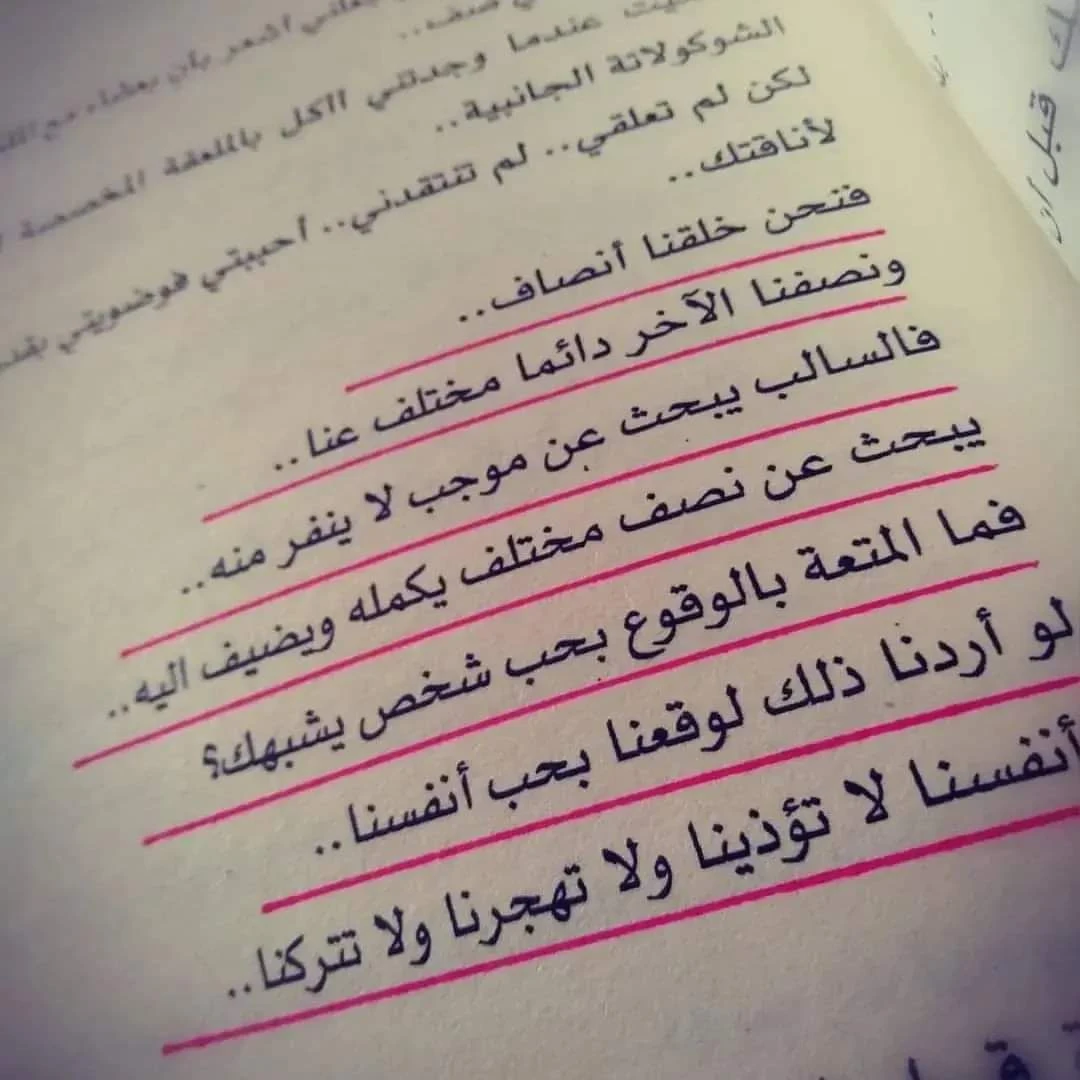 عندما وجدتني أأكل بالملعقة المخصصة
الشوكولاتة الجانبية..
لكن لم تعلقي.. لم تنتقدني.. أحببتي فوضويتي
لأناقتك..
فنحن خلقنا أنصاف..
ونصفنا الآخر دائما مختلف عنا..
فالسالب يبحث عن موجب لا ينفر منه..
يبحث عن نصف مختلف يكمله ويضيف اليه..
فما المتعة بالوقوع بحب شخص يشبهك؟
لو أردنا ذلك لوقعنا بحب أنفسنا..
أنفسنا لا تؤذينا ولا تهجرنا ولا تتركنا..
قبل ان